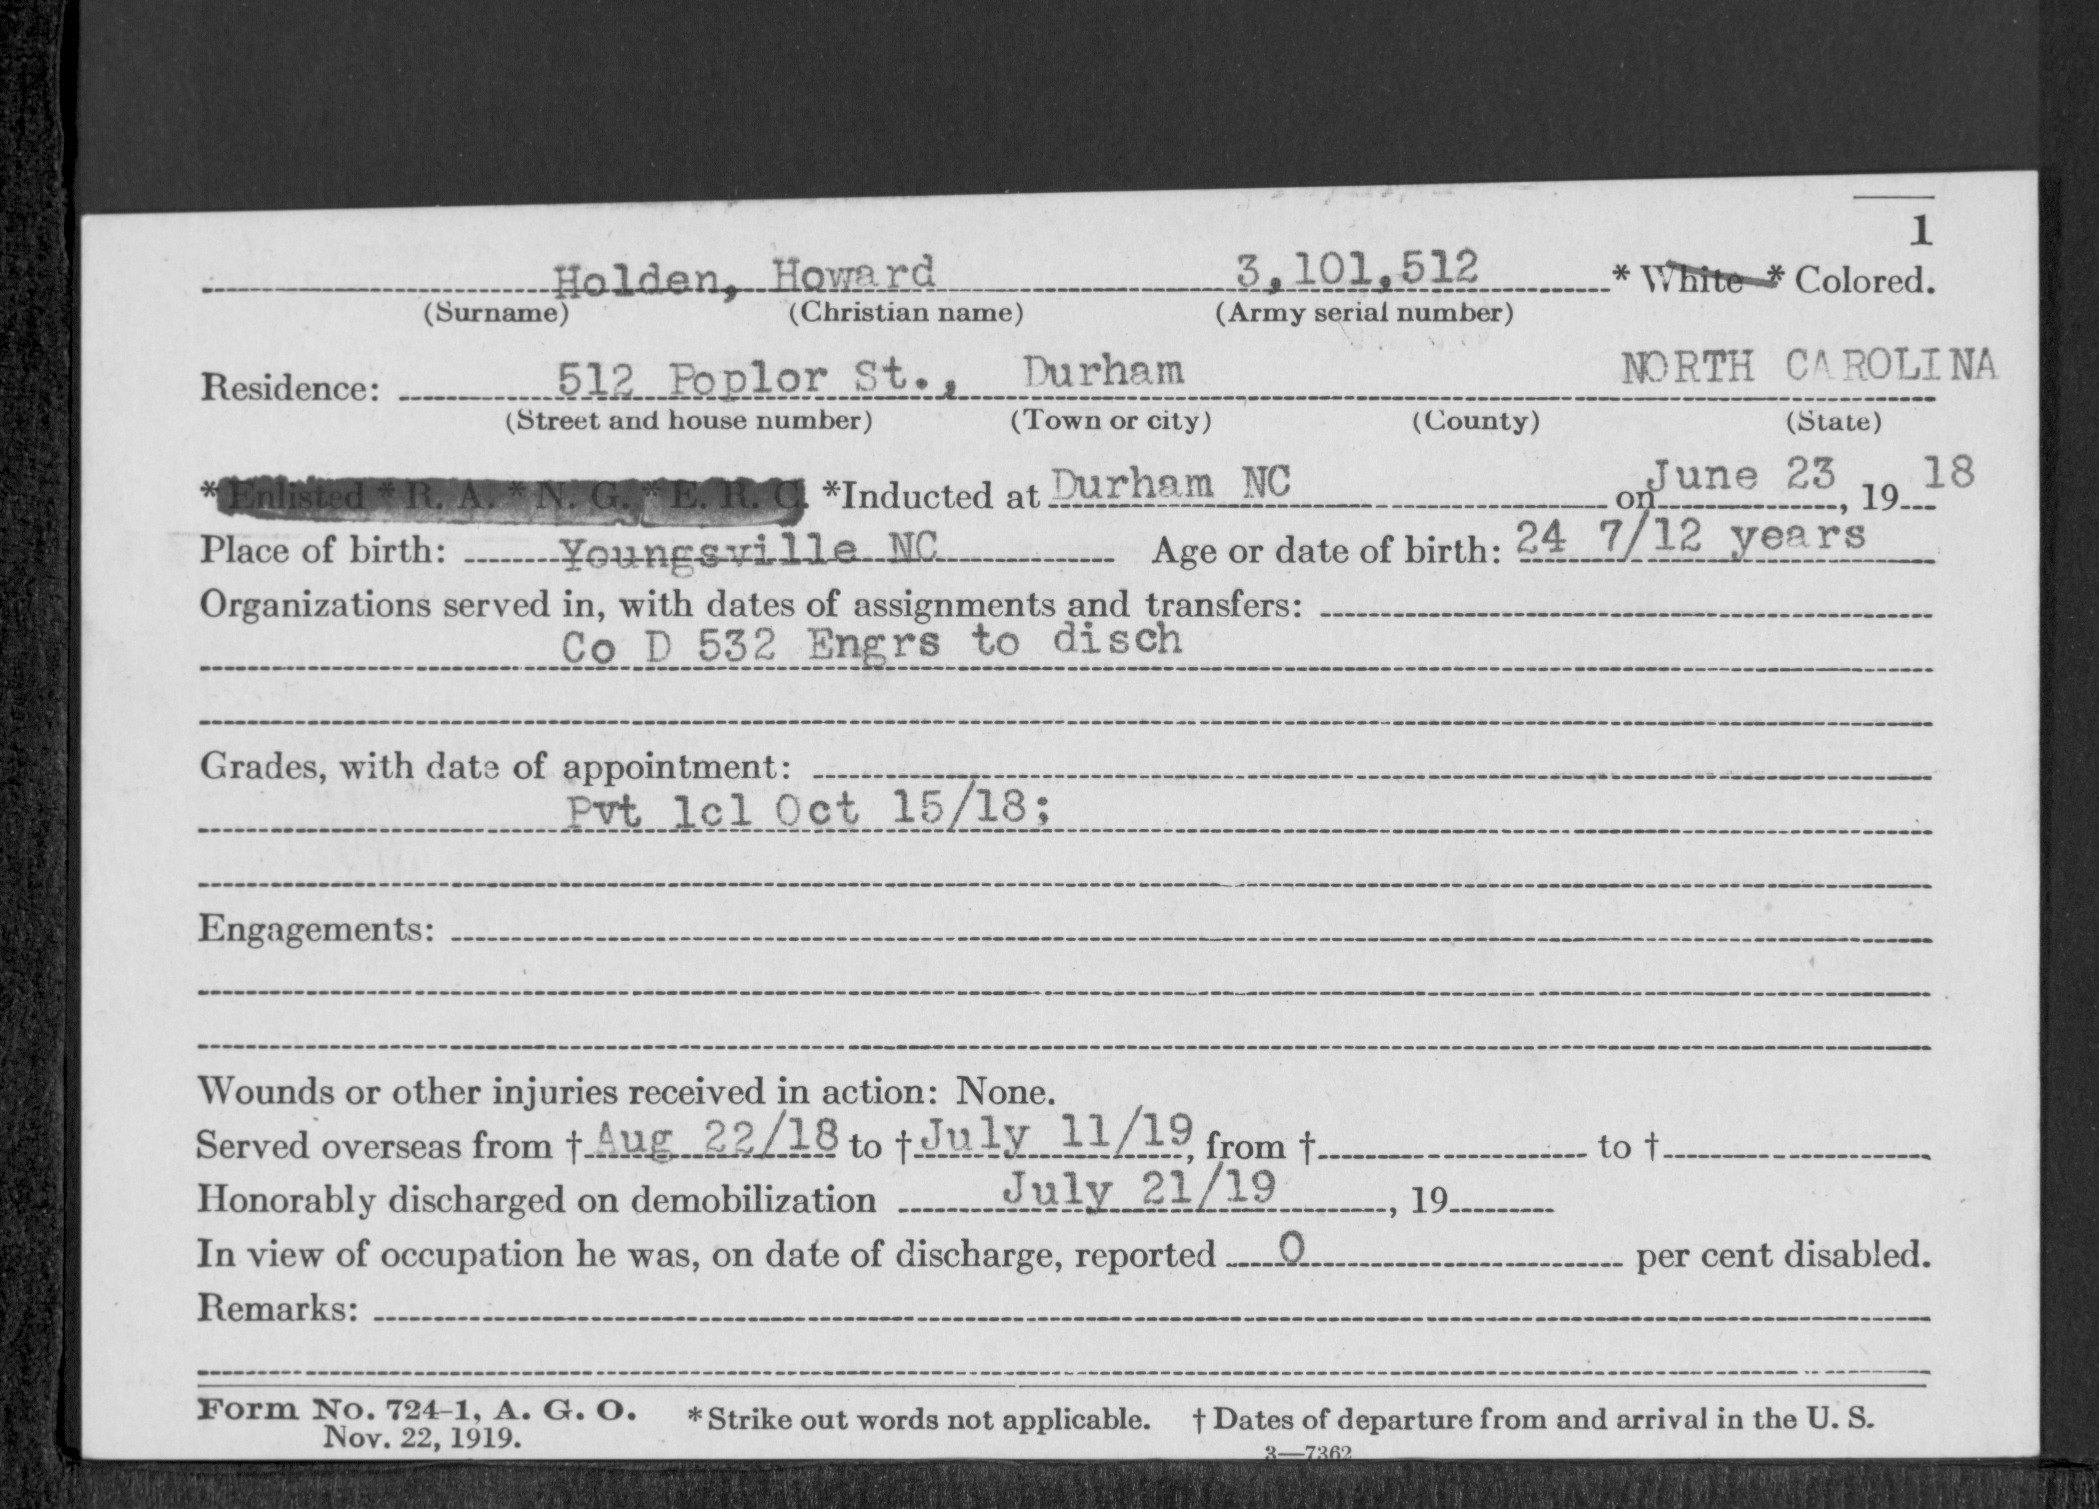 1
Holden, Howard 3,101,512 * White * Colored.
(Surname) (Christian name) (Army serial number)
Residence: 512 Poplor St., Durham NORTH CAROLINA
(Street and house number) (Town or city) (County) (State)
* Enlisted * R. A. * N. G. * E. R. C. *Inducted at Durham NC on June 23, 19 18
Place of birth: Youngsville NC Age or date of birth: 24 7/12 years
Organizations served in, with dates of assignments and transfers:
Co D 532 Engrs to disch
Grades, with date of appointment:
Pvt 1cl Oct 15/18;
Engagements:
Wounds or other injuries received in action: None.
Served overseas from † Aug 22/18 to † July 11/19, from † to †
Honorably discharged on demobilization July 21/19, 19
In view of occupation he was, on date of discharge, reported 0 per cent disabled.
Remarks:
Form No. 724-1, A. G. O. * Strike out words not applicable. † Dates of departure from and arrival in the U. S.
Nov. 22, 1919.
3—7362